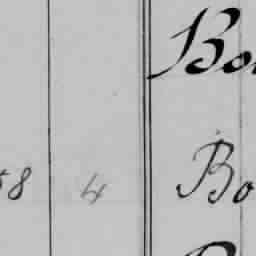 Bo
58 4 Bo